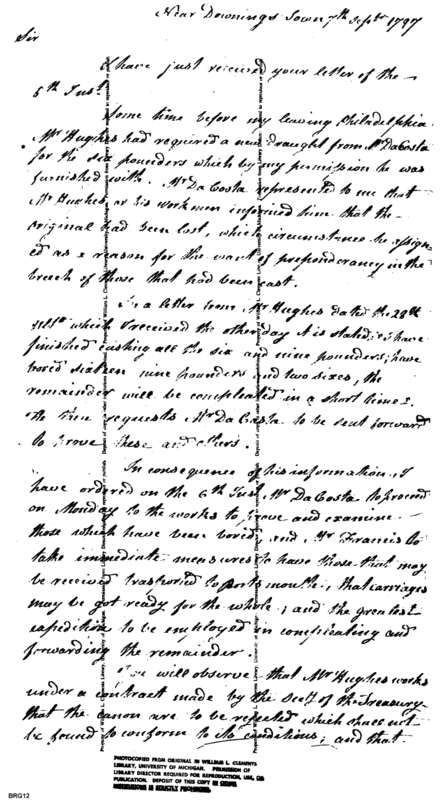 Near Downings Town 7th Septr 1797
Sir
I have just received your letter of the
5th Inst.
Some time before my leaving Philadelphia
Mr Hughes had required a new draught from Mr DaCosta
for the six pounders which by my permission he was
furnished with. Mr DaCosta represented to me that
Mr Hughes, or his workmen informed him that the
original had been lost, which circumstance he assign
ed as a reason for the want of preponderancy in the
breech of those that had been cast.
In a letter from Mr Hughes dated the 28th
ulto which I received the other day it is stated; I have
finished casting all the six and nine pounders; have
bored sixteen nine pounders and two sixes, the
remainder will be compleated in a short time.
He then requests Mr DaCosta to be sent forward
to prove these and others.
In consequence of his information, I
have ordered on the 6th Inst. Mr DaCosta to proceed
on Monday to the works to prove and examine
those which have been bored, and Mr Francis to
take immediate measures to have those that may
be received transported to Portsmouth, that carriages
may be got ready for the whole; and the greatest
expedition to be employed in compleating and
forwarding the remainder.
You will observe that Mr Hughes works
under a contract made by the Secy of the Treasury
that the canon are to be rejected which shall not
be found to conform to its conditions; and that
PHOTOCOPIED FROM ORIGINAL IN WILLIAM L. CLEMENTS
LIBRARY, UNIVERSITY OF MICHIGAN. PERMISSION OF
LIBRARY DIRECTOR REQUIRED FOR REPRODUCTION, USE, OR
PUBLICATION. DEPOSIT OF THIS COPY IN OTHER
INSTITUTIONS IS STRICTLY PROHIBITED.
BRG12